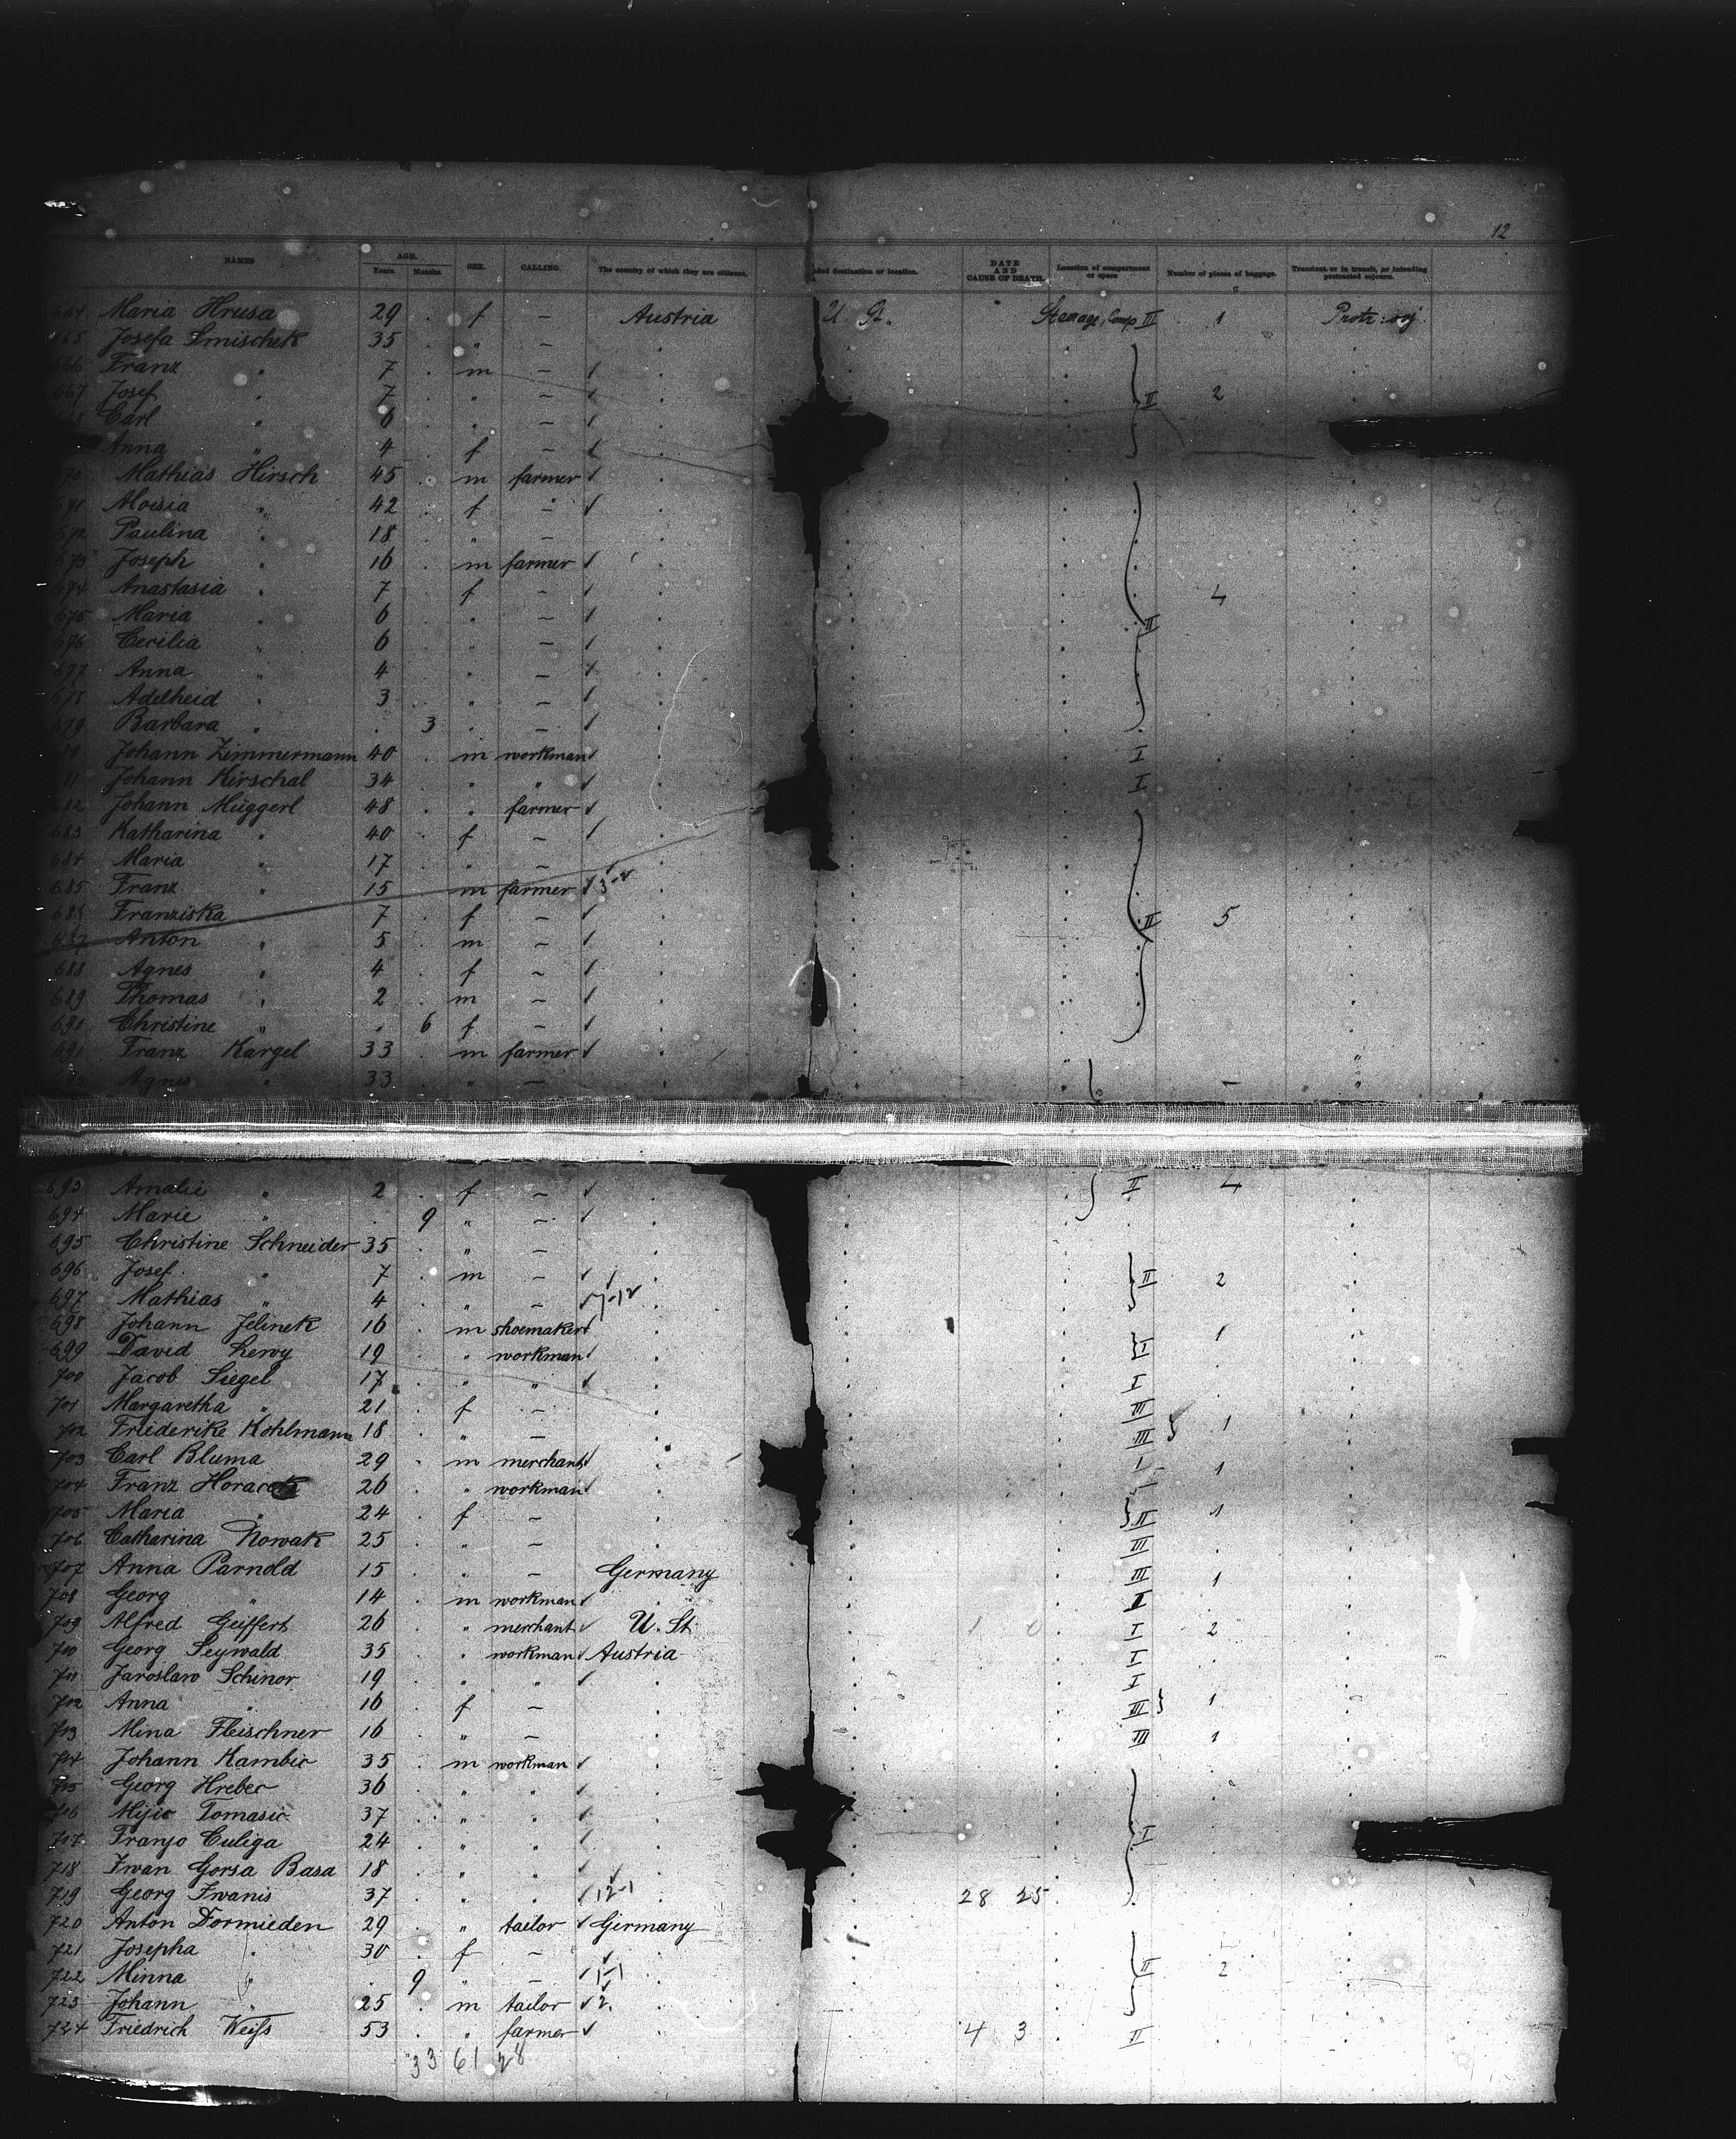 12
NAMES AGE. Years. Months. SEX. CALLING. The country of which they are citizens. ded destination or location. DATE AND CAUSE OF DEATH. Location of compartment or space Number of pieces of baggage. Transient or in transit, or intending protracted sojourn.
664 Maria Hrusa 29 . f — Austria U St. Steerage, Comp III 1 Protr: soj
665 Josefa Smischek 35 . " —
666 Franz " 7 . m —
667 Josef " 7 . " — II 2
668 Carl " 6 . " —
Anna " 4 . f —
670 Mathias Hirsch 45 . m farmer
671 Aloisia " 42 . f —
672 Paulina " 18 . " —
673 Joseph " 16 . m farmer
674 Anastasia " 7 . f — 4
675 Maria " 6 . " — II
676 Cecilia " 6 . " —
677 Anna " 4 . " —
678 Adelheid " 3 . " —
679 Barbara " . 3 " —
680 Johann Zimmermann 40 . m workman I
681 Johann Kirschal 34 . " " I
682 Johann Müggerl 48 . " farmer
683 Katharina " 40 . f —
684 Maria " 17 . " —
685 Franz " 15 . m farmer 3-2
686 Franziska " 7 . f — II 5
687 Anton " 5 . m —
688 Agnes " 4 . f —
689 Thomas " 2 . m —
690 Christine " . 6 f —
691 Franz Kargel 33 . m farmer "
Agnes " 33 . " — — "
693 Amalie " 2 . f — II 4
694 Marie " . 9 " —
695 Christine Schneider 35 . " —
696 Josef " 7 . m — II 2
697 Mathias " 4 . " — 7-12
698 Johann Jelinek 16 . m shoemaker 1
699 David Lewy 19 . " workman I
700 Jacob Siegel 17 . " " I
701 Margaretha " 21 . f — III
702 Friederike Kohlmann 18 . " — III 1
703 Carl Bluma 29 . m merchant I 1
704 Franz Horacek 26 . " workman
705 Maria " 24 . f — II 1
706 Catharina Nowak 25 . " — III
707 Anna Parnold 15 . " — Germany III 1
708 Georg " 14 . m workman I
709 Alfred Geiffert 26 . " merchant U. St. 1 0 I 2
710 Georg Seywald 35 . " workman Austria I
711 Jaroslaw Schinor 19 . " " I
712 Anna " 16 . f — III 1
713 Mina Fleischner 16 . " — III 1
714 Johann Kambic 35 . m workman
715 Georg Hrebec 36 . " "
716 Mijic Tomasic 37 . " "
717 Franjo Culiga 24 . " " I
718 Iwan Gorsa Basa 18 . " "
719 Georg Iwanis 37 . " " 12-1 28 25
720 Anton Dormieden 29 . " tailor Germany
721 Josepha " 30 . f —
722 Minna " . 9 " — 1-1 II 2
723 Johann " 25 . m tailor 2.
724 Friedrich Weiss 53 . " farmer 4 3 II
33 61 28